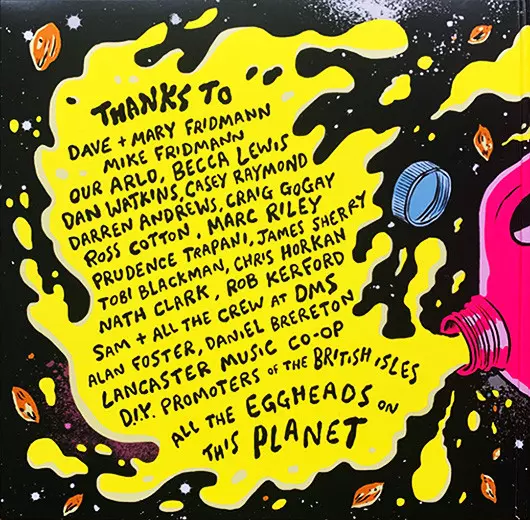 THANKS TO
DAVE + MARY FRIDMANN
MIKE FRIDMANN
OUR ARLO, BECCA LEWIS
DAN WATKINS, CASEY RAYMOND
DARREN ANDREWS, CRAIG GOGAY
ROSS COTTON, MARC RILEY
PRUDENCE TRAPANI, JAMES SHERRY
TOBI BLACKMAN, CHRIS HORKAN
NATH CLARK, ROB KERFORD
SAM + ALL THE CREW AT DMS
ALAN FOSTER, DANIEL BRERETON
LANCASTER MUSIC CO-OP
D.I.Y. PROMOTERS OF THE BRITISH ISLES
ALL THE EGGHEADS ON
THIS PLANET